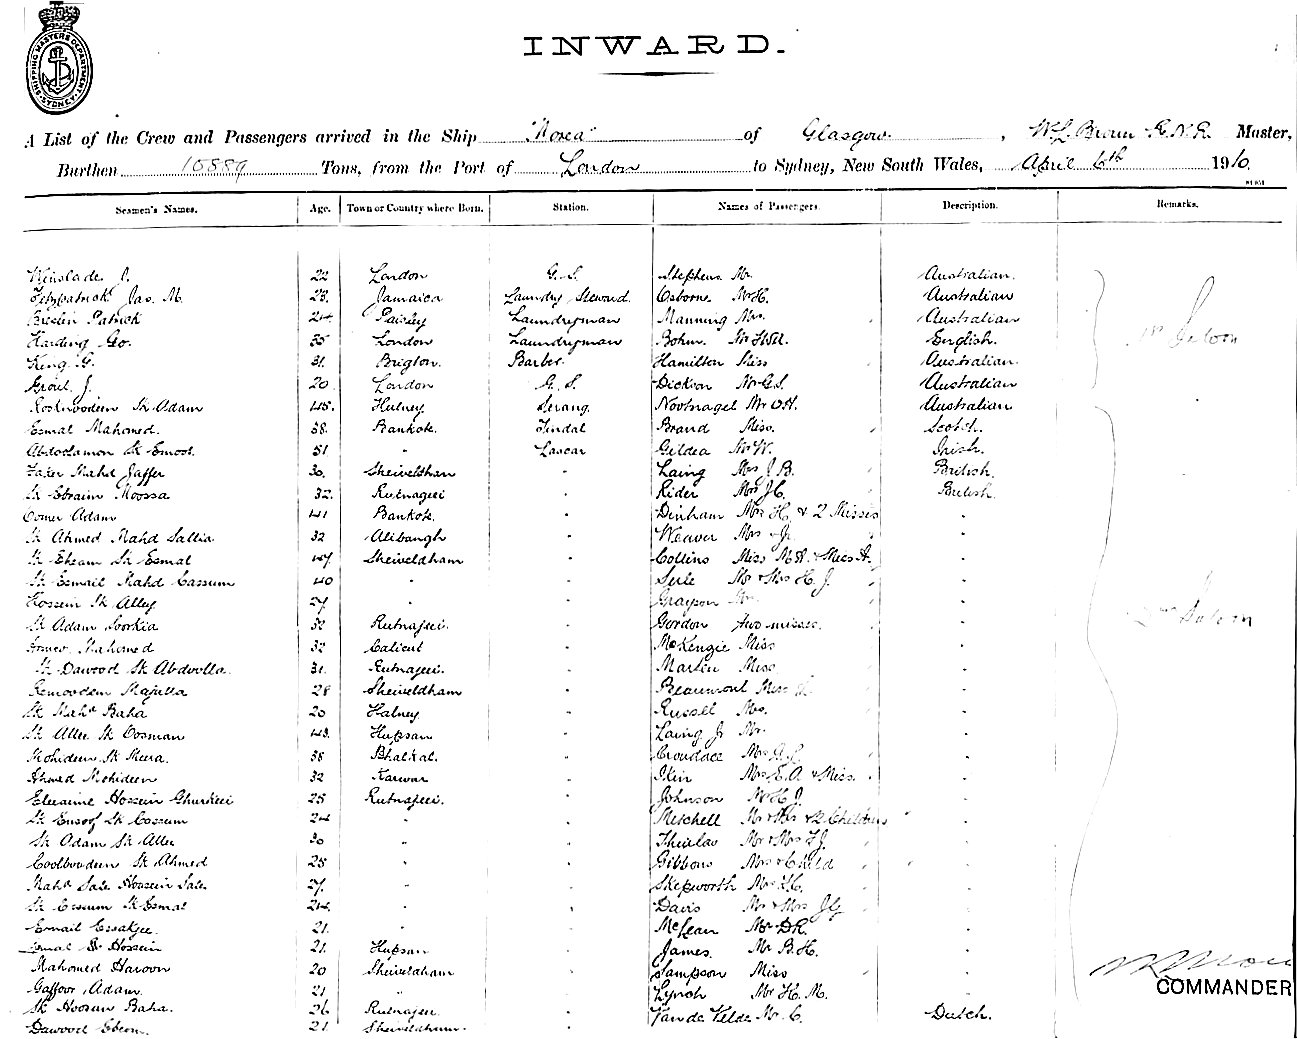 SHIPPING MASTERS DEPARTMENT SYDNEY
INWARD.
A List of the Crew and Passengers arrived in the Ship "Morea" of Glasgow, W.L. Broun R.N.R. Master,
Burthen 10889 Tons, from the Port of London to Sydney, New South Wales, April 6th 1910.
Seamen's Names. Age. Town or Country where Born. Station. Names of Passengers. Description. Remarks.
Winslade J. 22 London G.S. Stephens Mr. Australian.
Fitzpatrick Jas. M. 23. Jamaica Laundry Steward. Osborne Mr H. Australian
Breslin Patrick 24 Paisley Laundryman Manning Mrs. Australian 1st Saloon
Harding Geo. 35 London Laundryman Bohm. English.
King G. 31. Brigton. Barber. Hamilton Miss Australian.
J. 20. London G.S. Dickson Mr G.S. Australian
Sk Adam 45. Hulney. Serang. Nootnagel Mr Australian
Esmal Mahomed. 38. Bankote. Tindal Brand Miss. Scotch.
Sk Esmol. 51 " Lascar Gildea Mr W. Irish.
Mahd Jaffer 30. Sheiveldhan " Laing Mrs J.B. British.
Sk Ebraim Moossa 32. Rutnageei " Rider Mrs J.C. British.
Oomer Adam 41 Bankote. " Dinham Mrs H. & 2 Misses "
Sk Ahmed Mahd Sallia 32 Alibaugh " Weaver Mrs "
Sk Sk Esmal 47. Sheiveldham " Collins Miss M.A. & Miss A. "
Sk Esmail Mahd Cassum 40 " " Serle Mr & Mrs H.J. "
Hossein Sk Alley 27. " " Grayson "
Sk Adam 32 Rutnajeei. " Gordon two misses. " 2nd Saloon
Mahomed 32 Calicut " McKenzie Miss "
Sk Dawood Sk Abdoolla. 31. Rutnajeei. " Martin Miss "
Majulla 28 Sheiveldham " Beaumont Miss "
Sk Mahd Baha 20 Halney. " Russell Mrs. "
Sk Allee Sk Oosman 43. Hupsan " Laing Jr Mr "
Mohideen Sk Meera. 38 Bhatkal. " Croudace Mrs "
Ahmed Mohideen 32 Karwar " Ikin Mrs E.A. & Miss. "
Hossein Ghurkeei 25 Rutnajeei. " Johnson Mr H.J. "
Sk Ensoof Sk Cossum 24 " " Mitchell Mr & Mrs & 2 Children "
Sk Adam Sk Allee 30 " " Mr & Mrs F.J. "
Coolbooden Sk Ahmed 25 " " Gibbons Mrs & Child "
Mahd Sale Hossein Sale. 27. " " Skepworth Mr "
Sk Cssum Sk Esmal 24. " " Davis Mr & Mrs "
Esmail Essakjee. 21. " " McLean Mr D.R. "
Sk Hossein 21. Hupsan " James. Mr B.H. "
Mahomed Haroon 20 Sheiveldham " Sampson Miss "
Gaffoor Adam. 21 " " Lynch Mr H.M. "
COMMANDER
Sk Hoosun Baha. 26 Rutnajeei " Van de Velde Mr C. Dutch.
Dawood 21. Sheiveldham. "